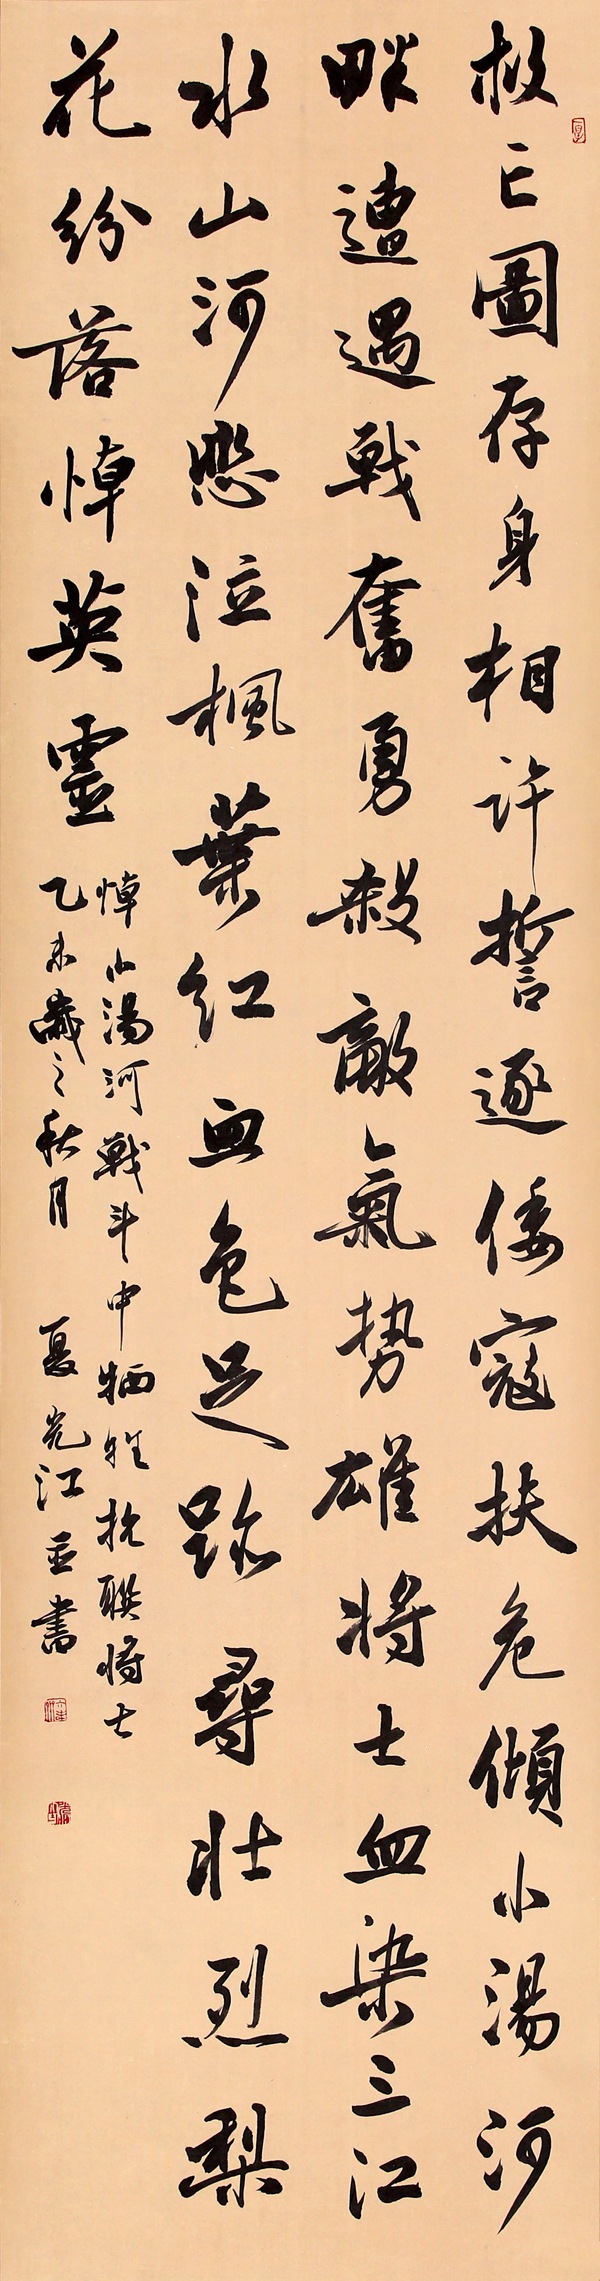 救亡圖存身相許誓逐倭寇扶危傾小湯河
畔遭遇戰奮勇殺敵氣势雄將士血染三江
水山河悲泣楓葉紅血色足跡尋壯烈梨
花纷落悼英靈
悼小湯河戰斗中牺牲抗聯將士
乙未歲之秋月 夏光江並書